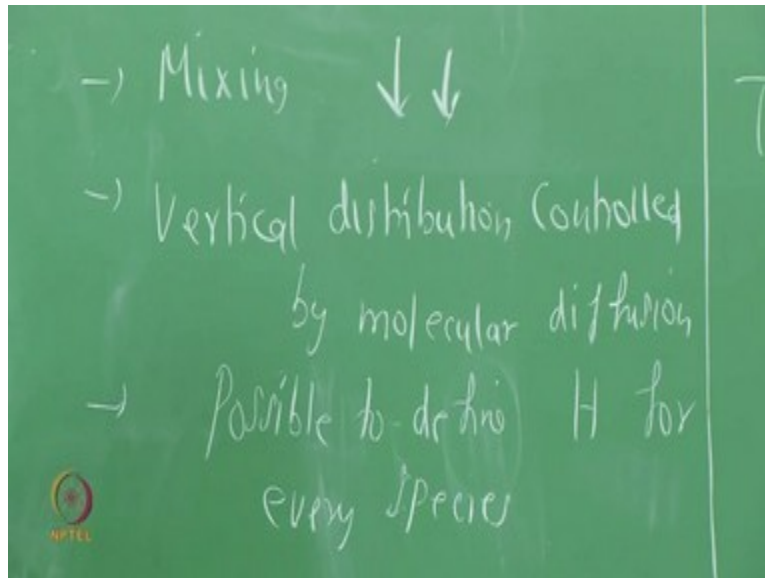 → Mixing ↓ ↓
→ Vertical distribution Controlled
by molecular diffusion
→ Possible to define H for
every species
NPTEL